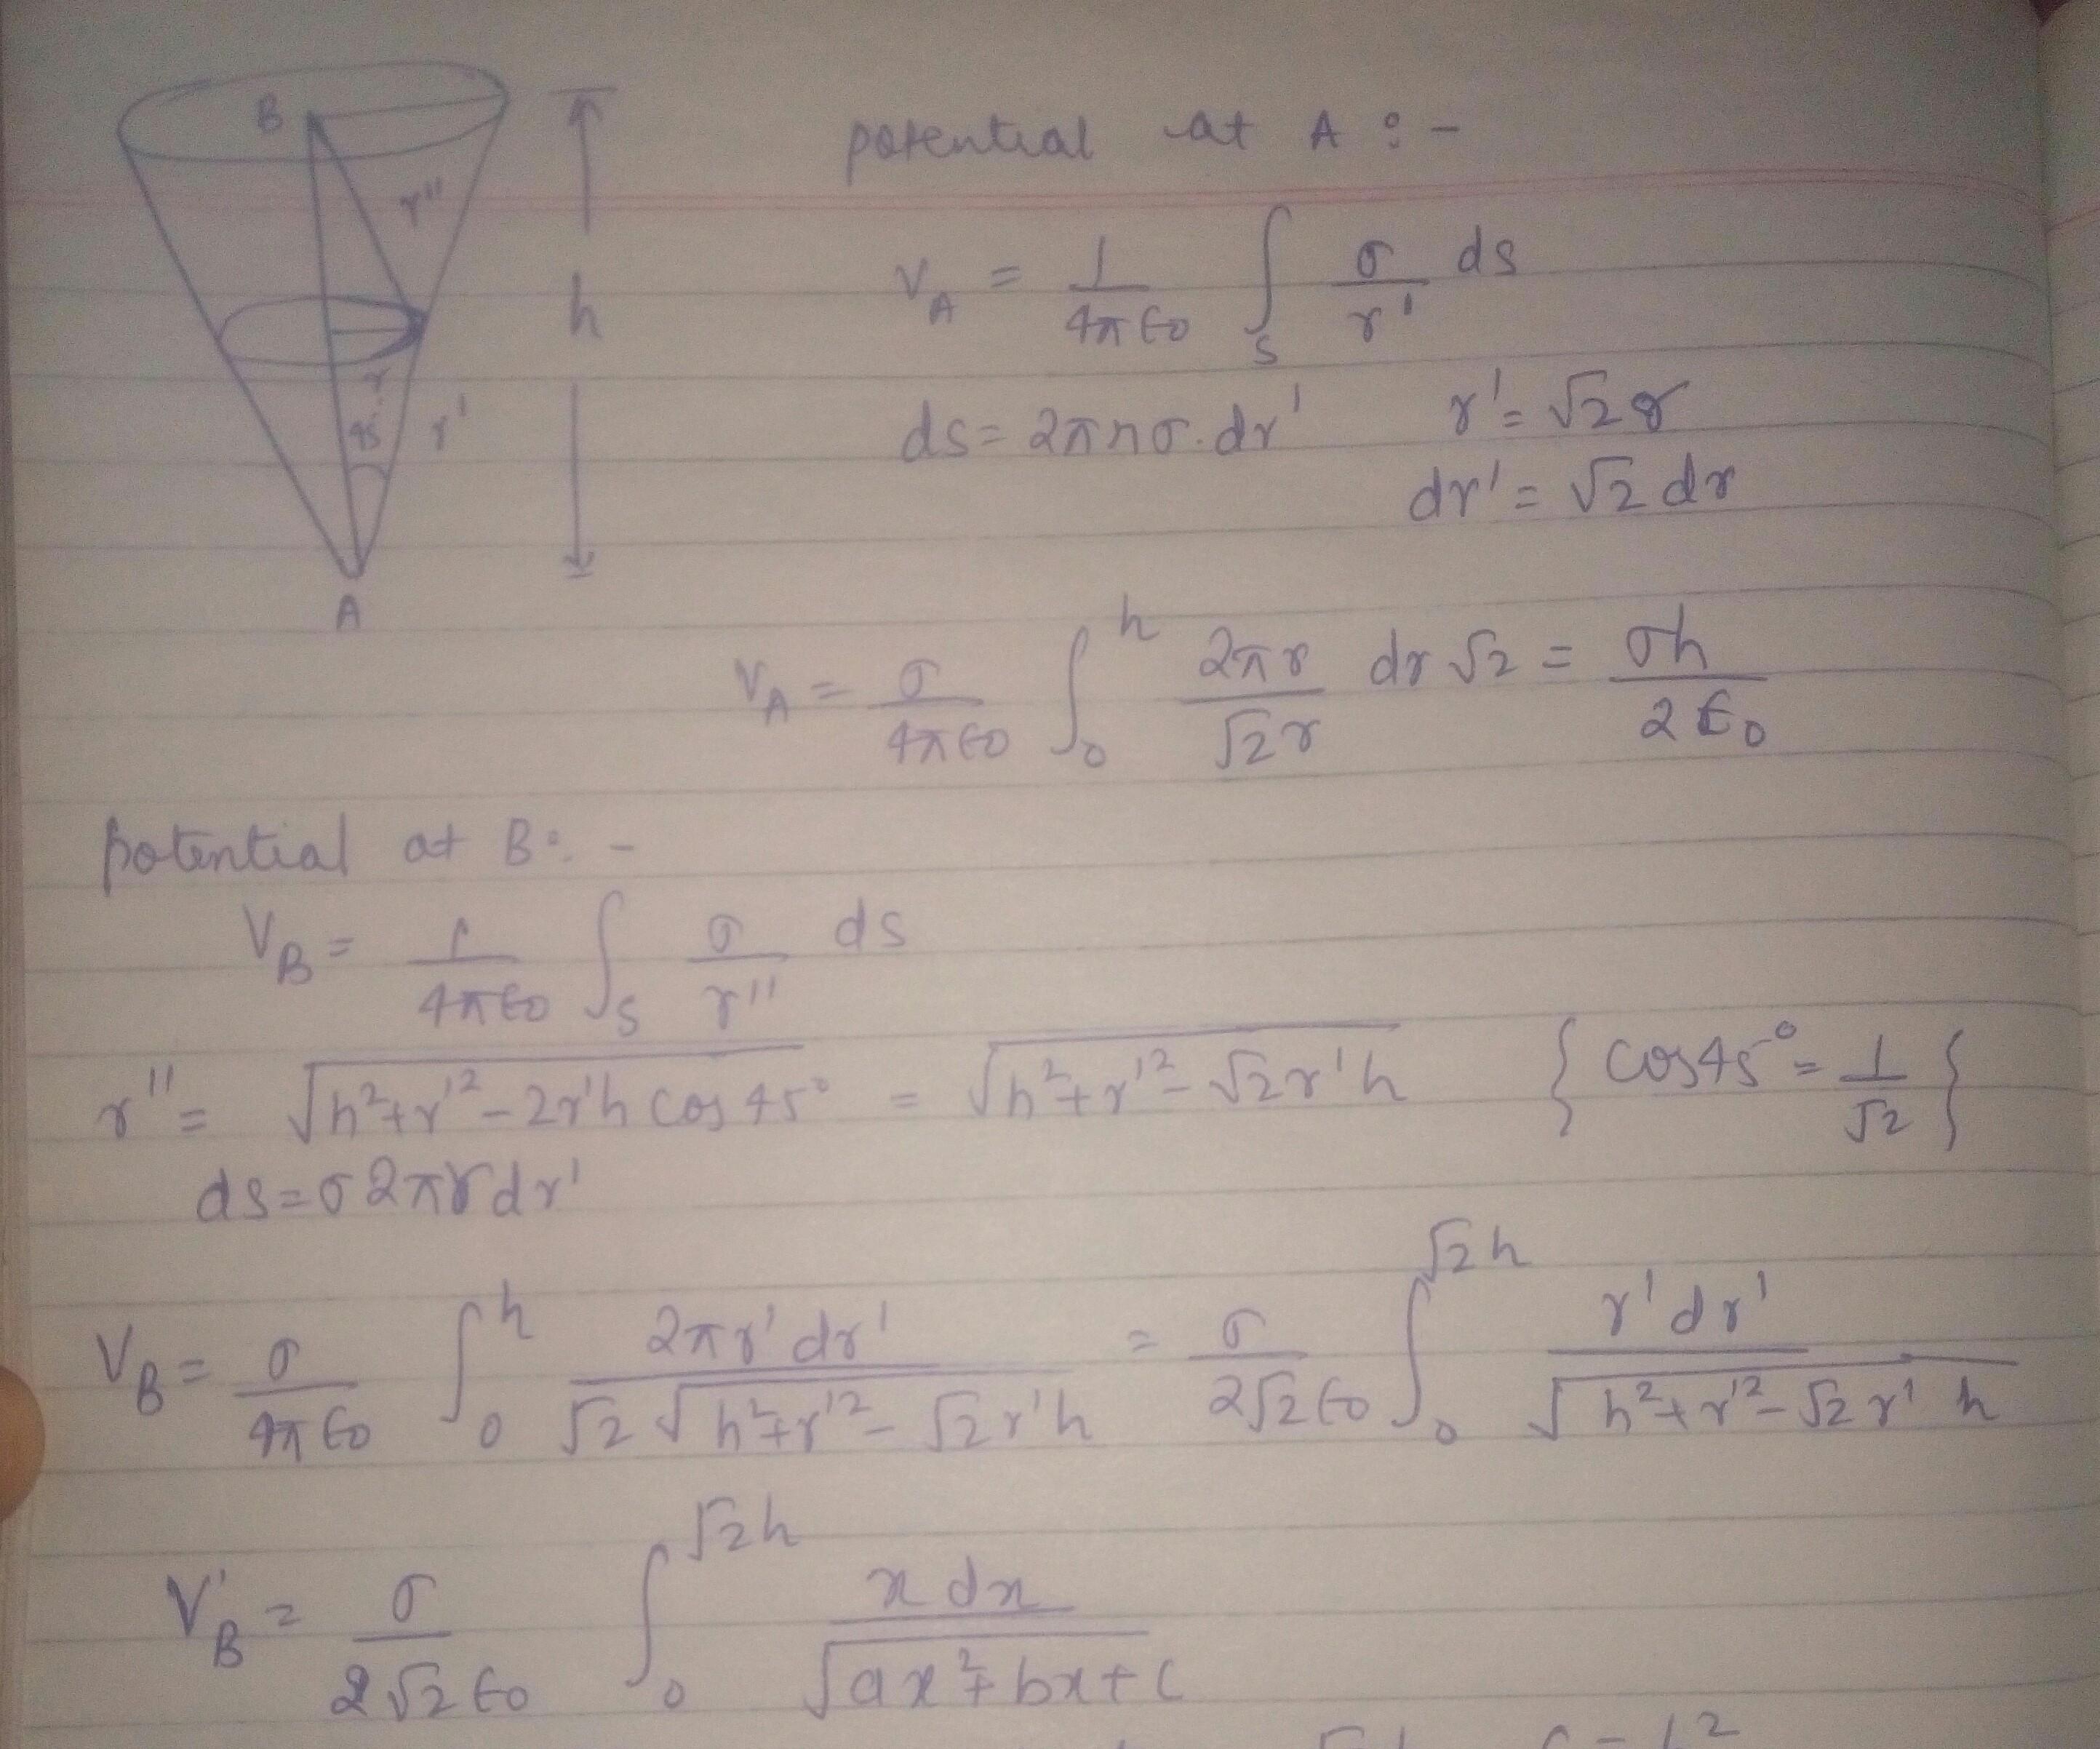 B
r''
h
r
45
r'
A
potential at A : -
V_A = 1/4πϵ0 ∫_S σ/r' ds
ds = 2πrσ.dr' r' = √2r
dr' = √2 dr
V_A = σ/4πϵ0 ∫_0^h 2πr/√2r dr √2 = σh/2ϵ0
potential at B : -
V_B = 1/4πϵ0 ∫_S σ/r'' ds
r'' = √(h²+r'²-2r'h cos 45°) = √(h²+r'²-√2r'h) { cos45° = 1/√2 }
ds = σ2πrdr'
V_B = σ/4πϵ0 ∫_0^h 2πr'dr'/√2√(h²+r'²-√2r'h) = σ/2√2ϵ0 ∫_0^√2h r'dr'/√(h²+r'²-√2r'h)
V'_B = σ/2√2ϵ0 ∫_0^√2h x dx/√(ax²+bx+c)